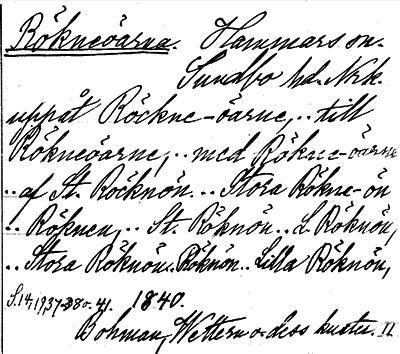 Rökneöarna. Hammars sn.
Sundbo hd. Nrk.
uppåt Röckne-öarne, .. till
Rökneöarne, .. med Rökne-öarne
.. af St. Röcknön .. Stora Rökne-ön
.. Röknen, .. St. Röknön .. L. Röknön,
.. Stora Röknön. Röknön .. Lilla Röknön,
S. 14, 19, 37 41. 1840.
Bohman, Wettern o. dess kuster. II